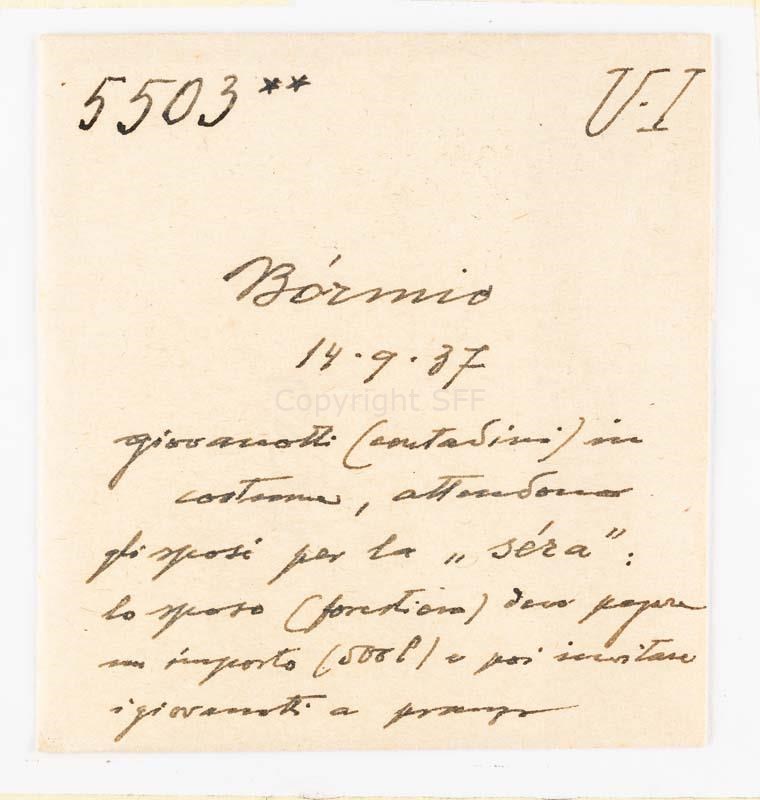 5503** U.I
Bórmio
14.9.37
Copyright SFF
giovanotti (contadini) in
costume, attendono
gli sposi per la „séra":
lo sposo (forestiero) deve pagare
un importo (500 l) e poi invitare
i giovanotti a pranzo